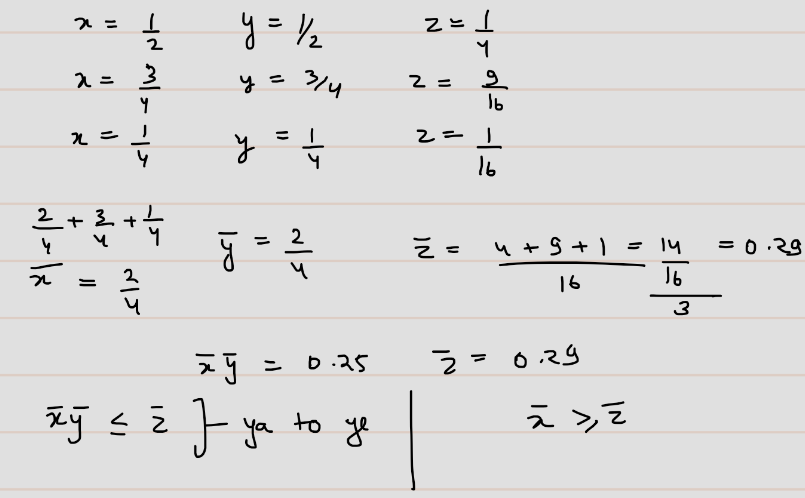 x = 1/2 y = 1/2 z = 1/4
x = 3/4 y = 3/4 z = 9/16
x = 1/4 y = 1/4 z = 1/16
2/4 + 3/4 + 1/4
x̄ = 2/4 ȳ = 2/4 z̄ = (4 + 9 + 1)/16 = (14/16)/3 = 0.29
x̄ ȳ = 0.25 z̄ = 0.29
x̄ȳ ≤ z̄ } ya to ye | x̄ ≥ z̄